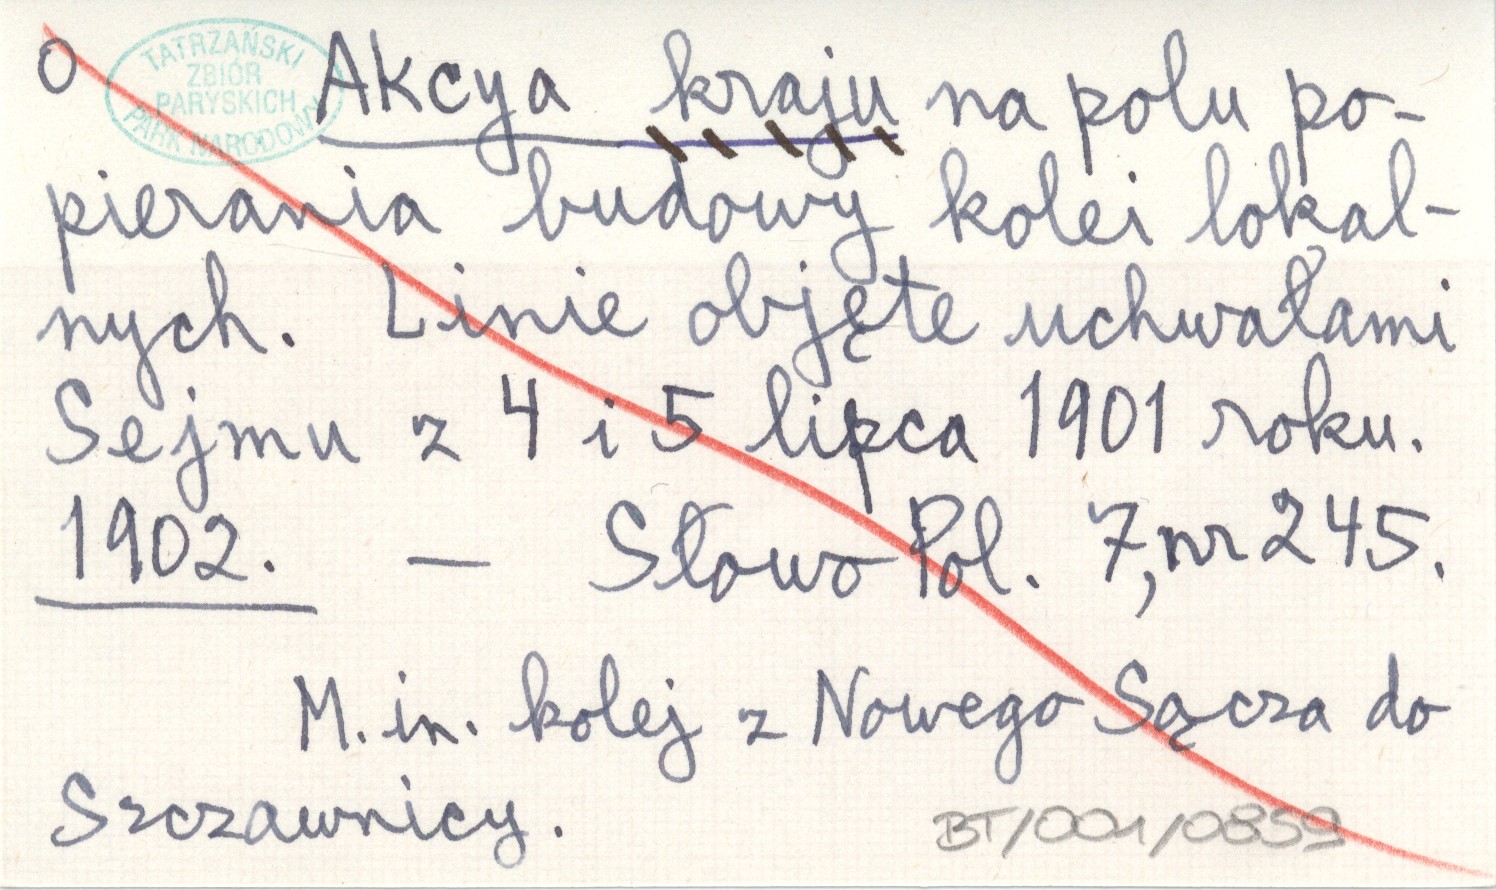 O
TATRZAŃSKI
ZBIÓR
PARYSKICH
PARK NARODOWY
Akcya kraju na polu po-
pierania budowy kolei lokal-
nych. Linie objęte uchwałami
Sejmu z 4 i 5 lipca 1901 roku.
1902. — Słowo Pol. 7, nr 245.
M. in. kolej z Nowego Sącza do
Szczawnicy.
BT/001/0859